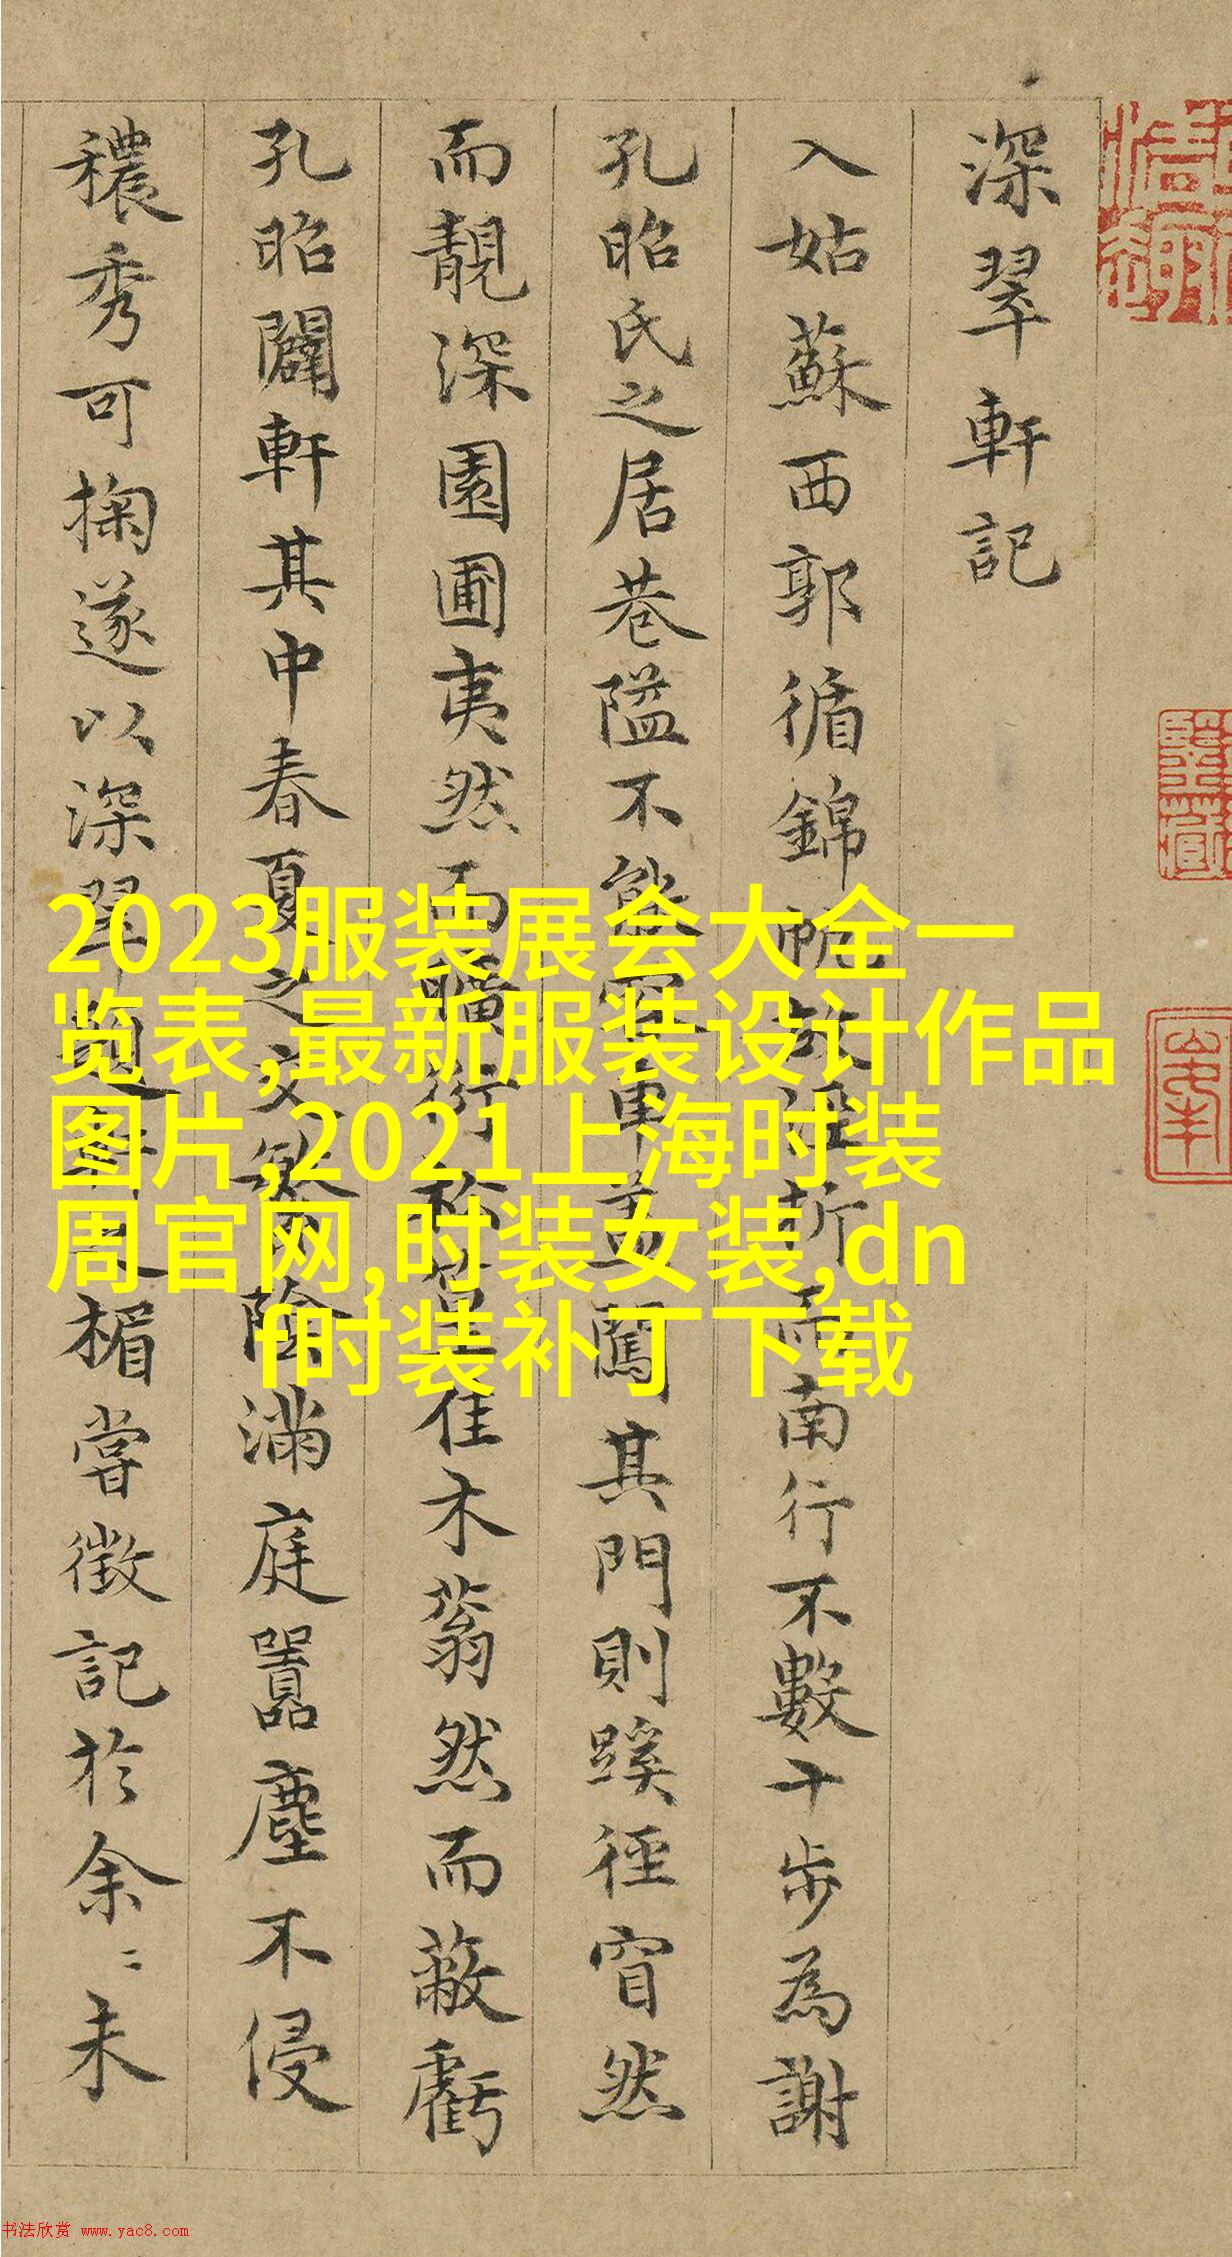 深翠軒記
入姑蘇西郭循錦帆故涇折而南行不數十步為謝
孔昭氏之居巷隘不能容車蓋闖其門則蹊徑窅然
而靚深園圃夷然而曠衍松篁佳木蓊然而蔽虧
孔昭闢軒其中春夏之交繁陰滿庭囂塵不侵
穠秀可掬遂以深翠題軒之楣嘗徵記於余〻未
2023服装展会大全一
览表,最新服装设计作品
图片,2021上海时装
周官网,时装女装,dn
f时装补丁下载
书法欣赏 www.yac8.com